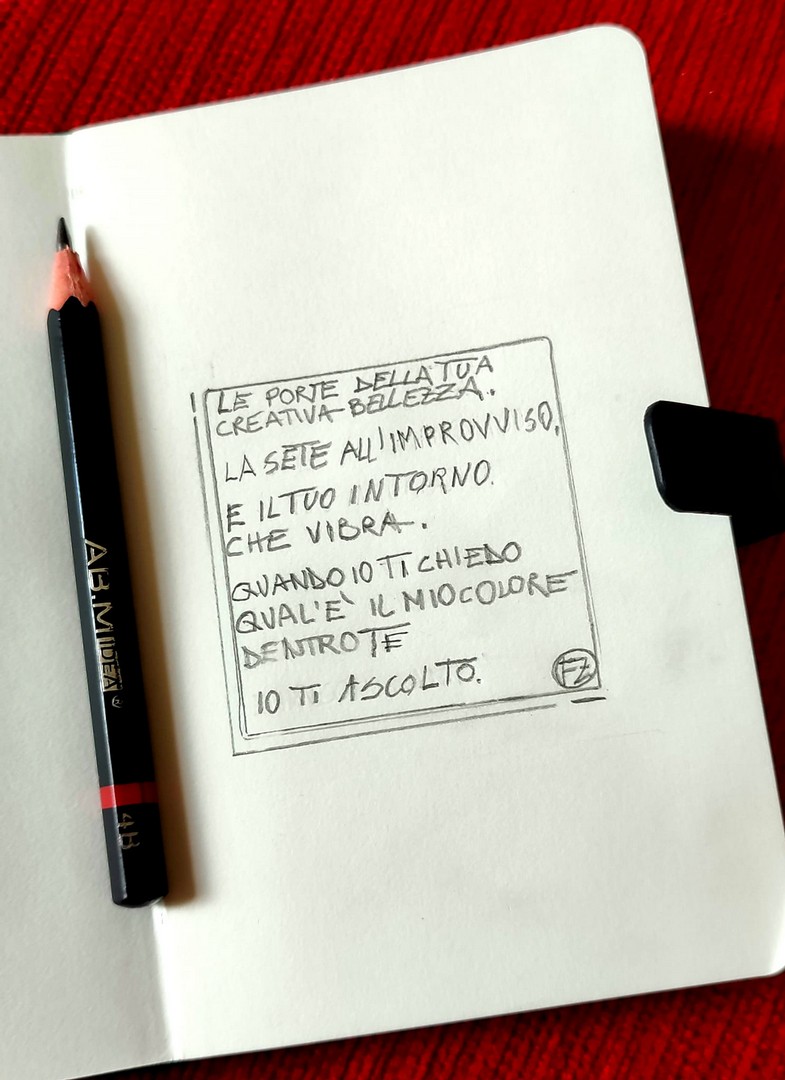 LE PORTE DELLA TUA
CREATIVA BELLEZZA..
LA SETE ALL'IMPROVVISO,
E IL TUO INTORNO.
CHE VIBRA.
QUANDO IO TI CHIEDO
QUAL'E' IL MIO COLORE
DENTRO TE
IO TI ASCOLTO.
FZ
AB.MIDEA
4B